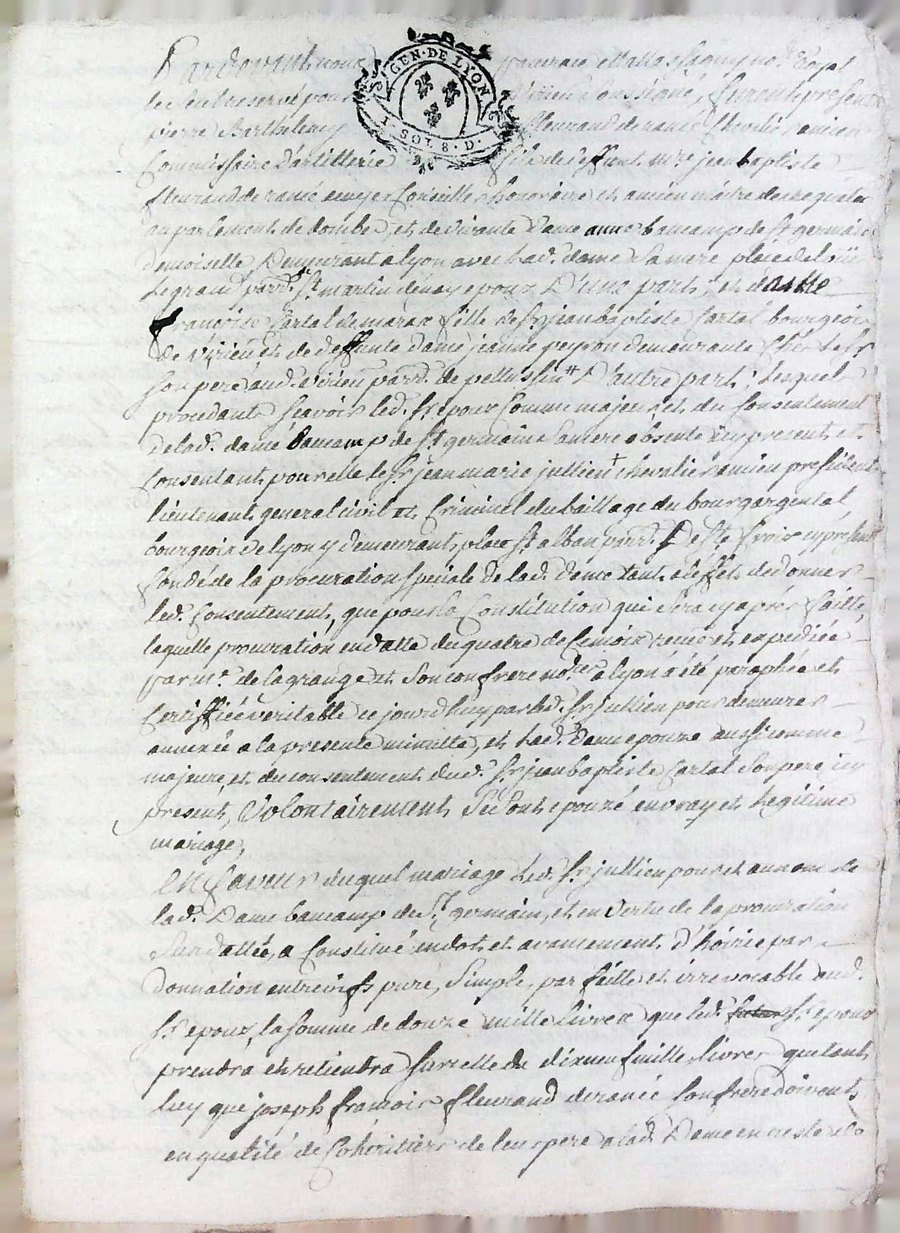 GEN · DE LYON
1 · SOL 8 · D ·
Pardevant nous no.re Royal
le seul reservé pour furent presents
pierre Barthelemy fleurand de rancé Chevalier ancien
Commissaire d'artillerie fils de deffunt mre jean baptiste
fleurand de rancé ecuyer Conseiller honoraire et ancien maitre des requetes
au parlement de dombe, et de vivante dame anne baucamp de st germain
demoiselle Demeurant a lyon avec lad. dame sa mere place de
Legrand parr. st martin d'enay epoux D'une part; et d'autre
françoise Cartal de marax fille de sr jean baptiste Cartal bourgeois
de virieu et de deffunte dame jeanne peyron demeurante chez led. sr
son pere aud. virieu parr. de pellussin D'autre part; Lesquels
procedants scavoir led. sr epoux Comme majeur et du Consentement
de lad. dame Baucamp de st germain sa mere absente icy present et
Consentant pour elle le sr jean marie jullien chevalier ancien president
lieutenant general civil et Criminel du baillage du bourgargental
bourgeois de lyon y demeurant place st alban parr. De ste Croix icy present
fondé de la procuration speciale de lad. dame tant a l'effet de donner
led. Consentement, que pour la Constitution qui sera cy après faitte,
laquelle procuration en datte du quatre de ce mois receue et expediée
par mr. de lagrange et son confrere no.res a lyon a été paraphée et
Certiffiée veritable ce jourdhuy par led. sr jullien pour demeurer
annexée a la presente minutte, et lad. Dame epouze aussi comme
majeure, et du consentement dud. sr jean baptiste Cartal son pere icy
present, Volontairement se sont epouzé en vray et legitime
mariage,
En faveur duquel mariage led. sr jullien pour et au nom de
lad. Dame baucamp de st germain, et en vertu de la procuration
susdattée, a Constitué en dot et avancement d'hoirie par
donnation entrevifs pure, simple, parfaitte et irrevocable aud.
sr epoux, la somme de douze mille livres que led. sr epoux
prendra et retiendra sur celle du dixneuf mille livres que tant
luy que joseph françois fleurand de rancé son frere doivent
en qualité de Cohéritiers de leur pere a lad. Dame en reste de